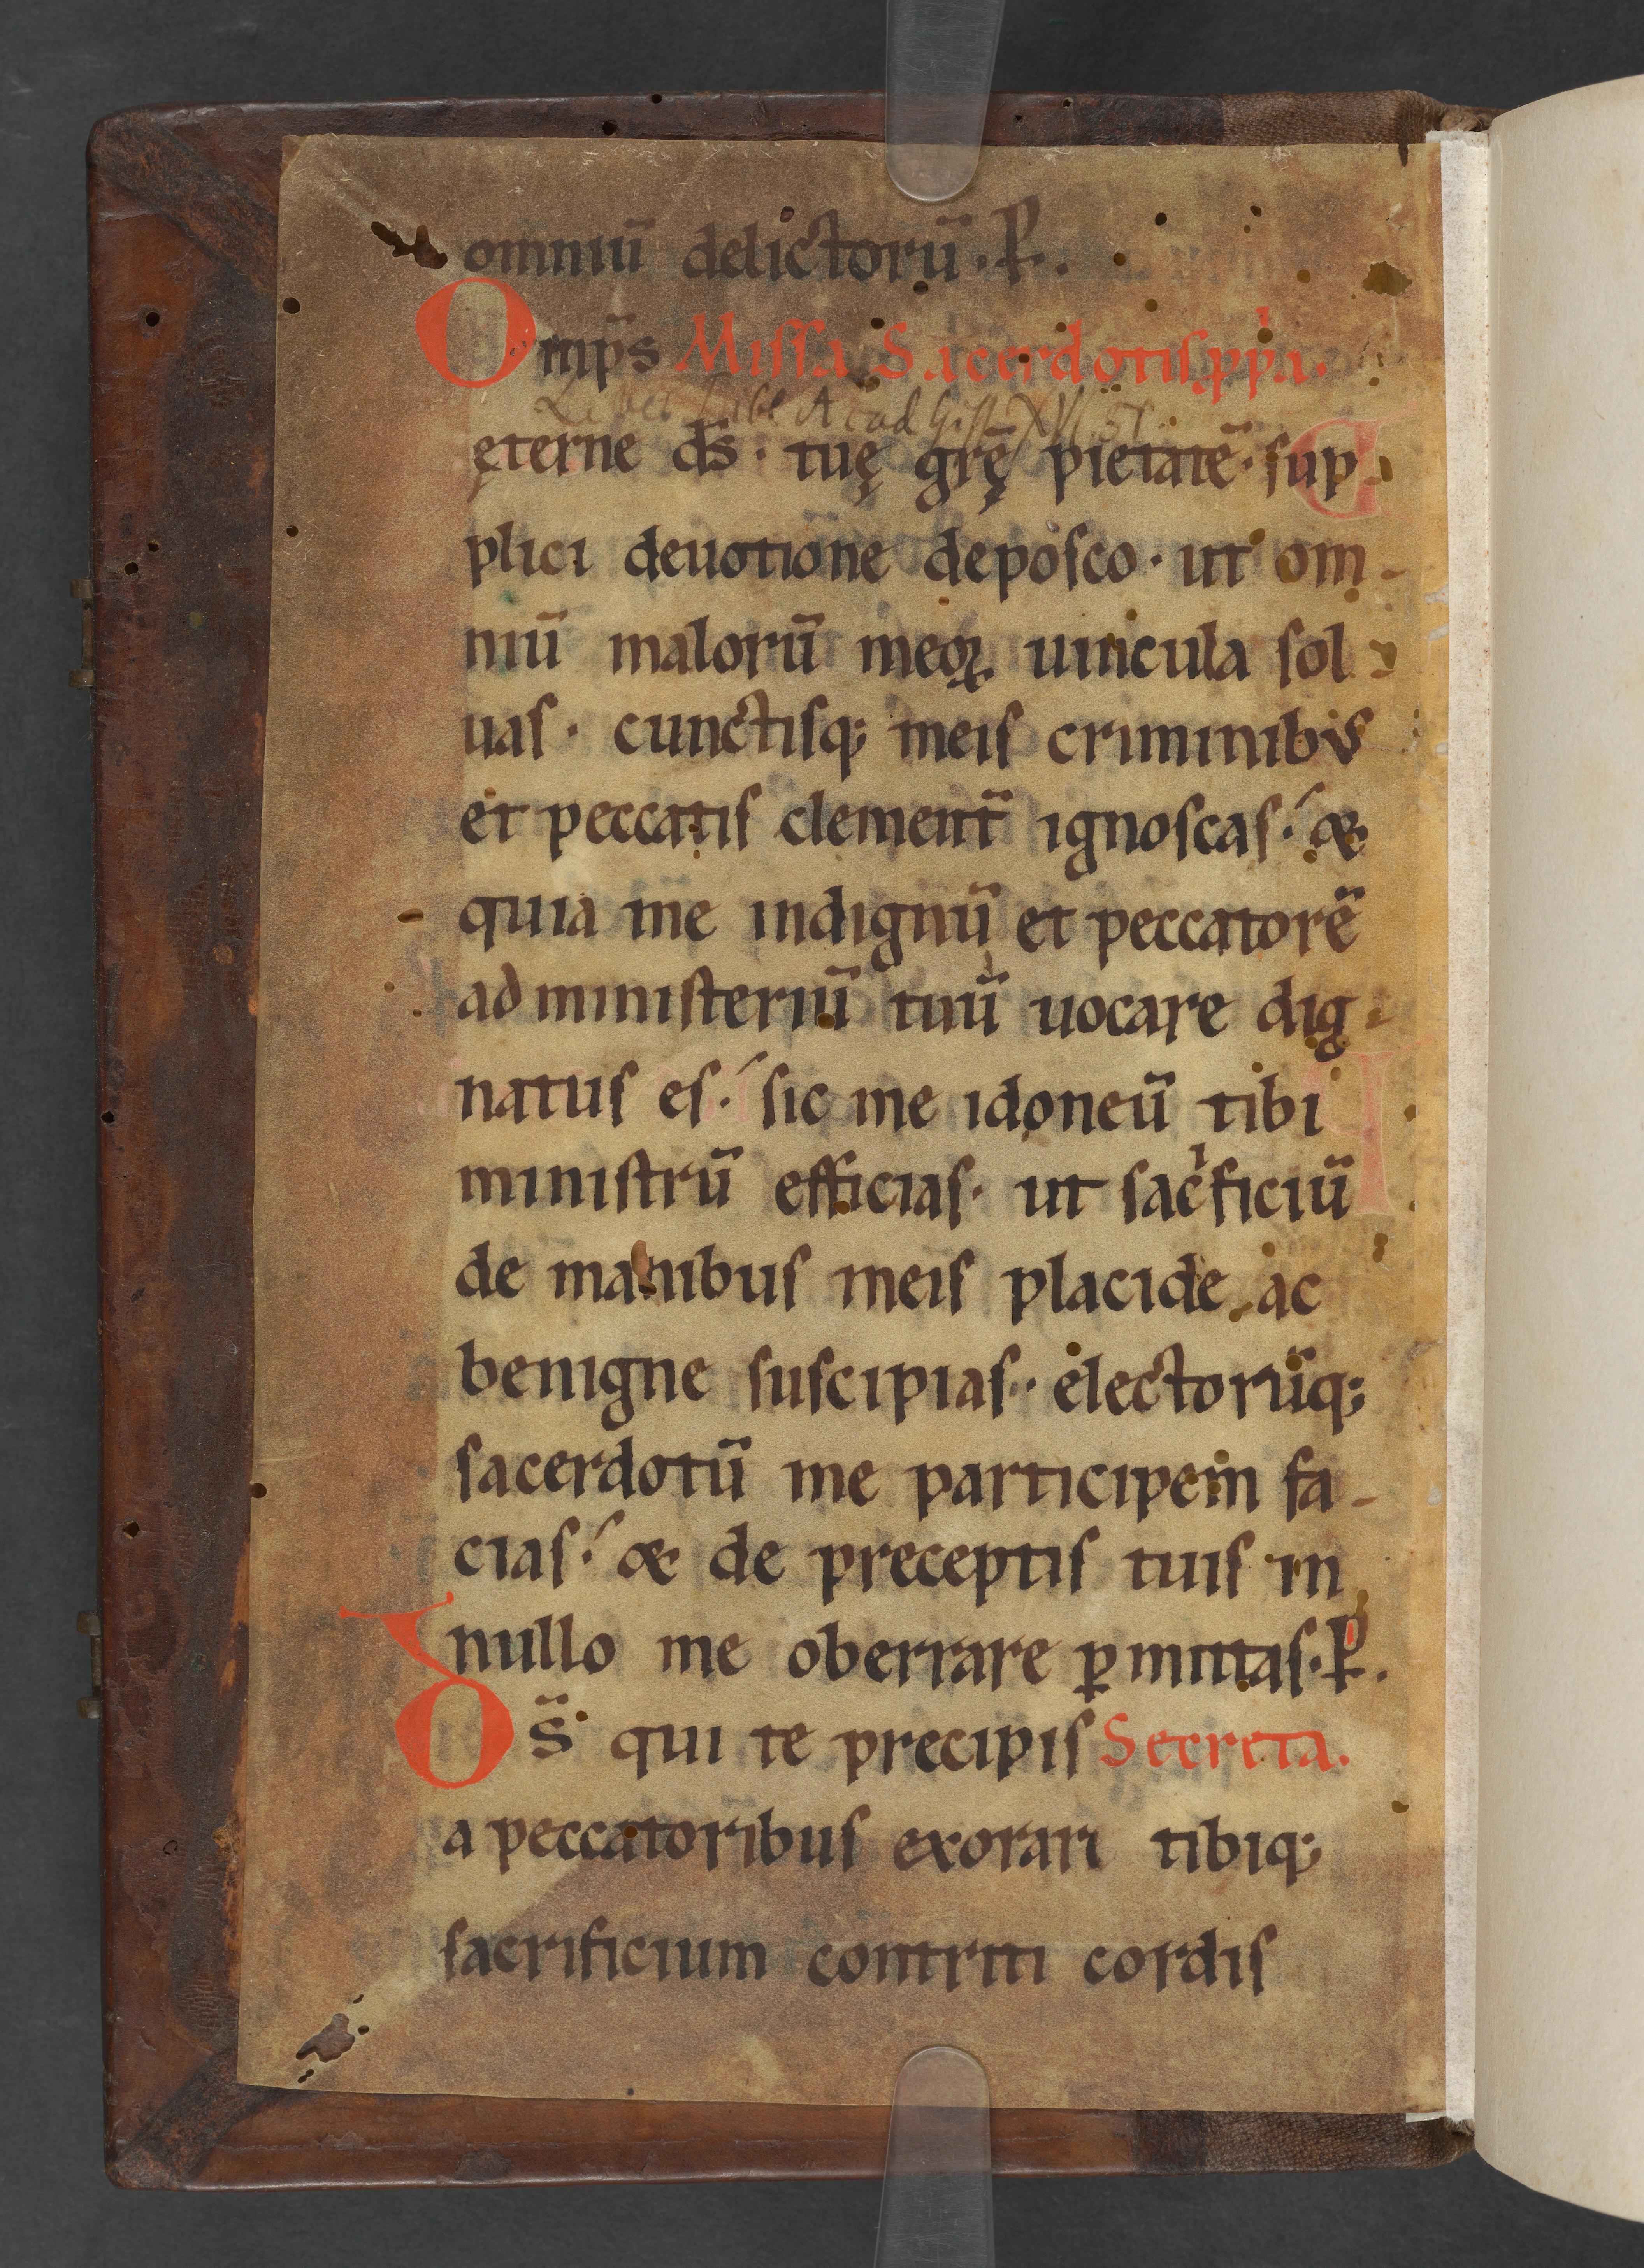 omniū delictorū. P̄.
Omp̄s Missa Sacerdotis ꝓp̍a.
Acad
ęterne ds̄. tuę grę̄ pietatē. sup
plici deuotione deposco. ut om-
niū malorū meoꝝ uincula sol
uas. cunctisq; meis criminibus
et peccatis clement̄ ignoscas. &
quia me indignū et peccatorē
ad ministeriū tuū uocare dig
natus es. sic me idoneū tibi
ministrū efficias. ut sac̍ficiū
de manibus meis placide ac
benigne suscipias. electorūq;
sacerdotū me participem fa-
cias. & de preceptis tuis in
nullo me oberrare ꝑmittas. P̄.
Ds̄ qui te precipis Secreta.
a peccatoribus exorari tibiq;
sacrificium contriti cordis